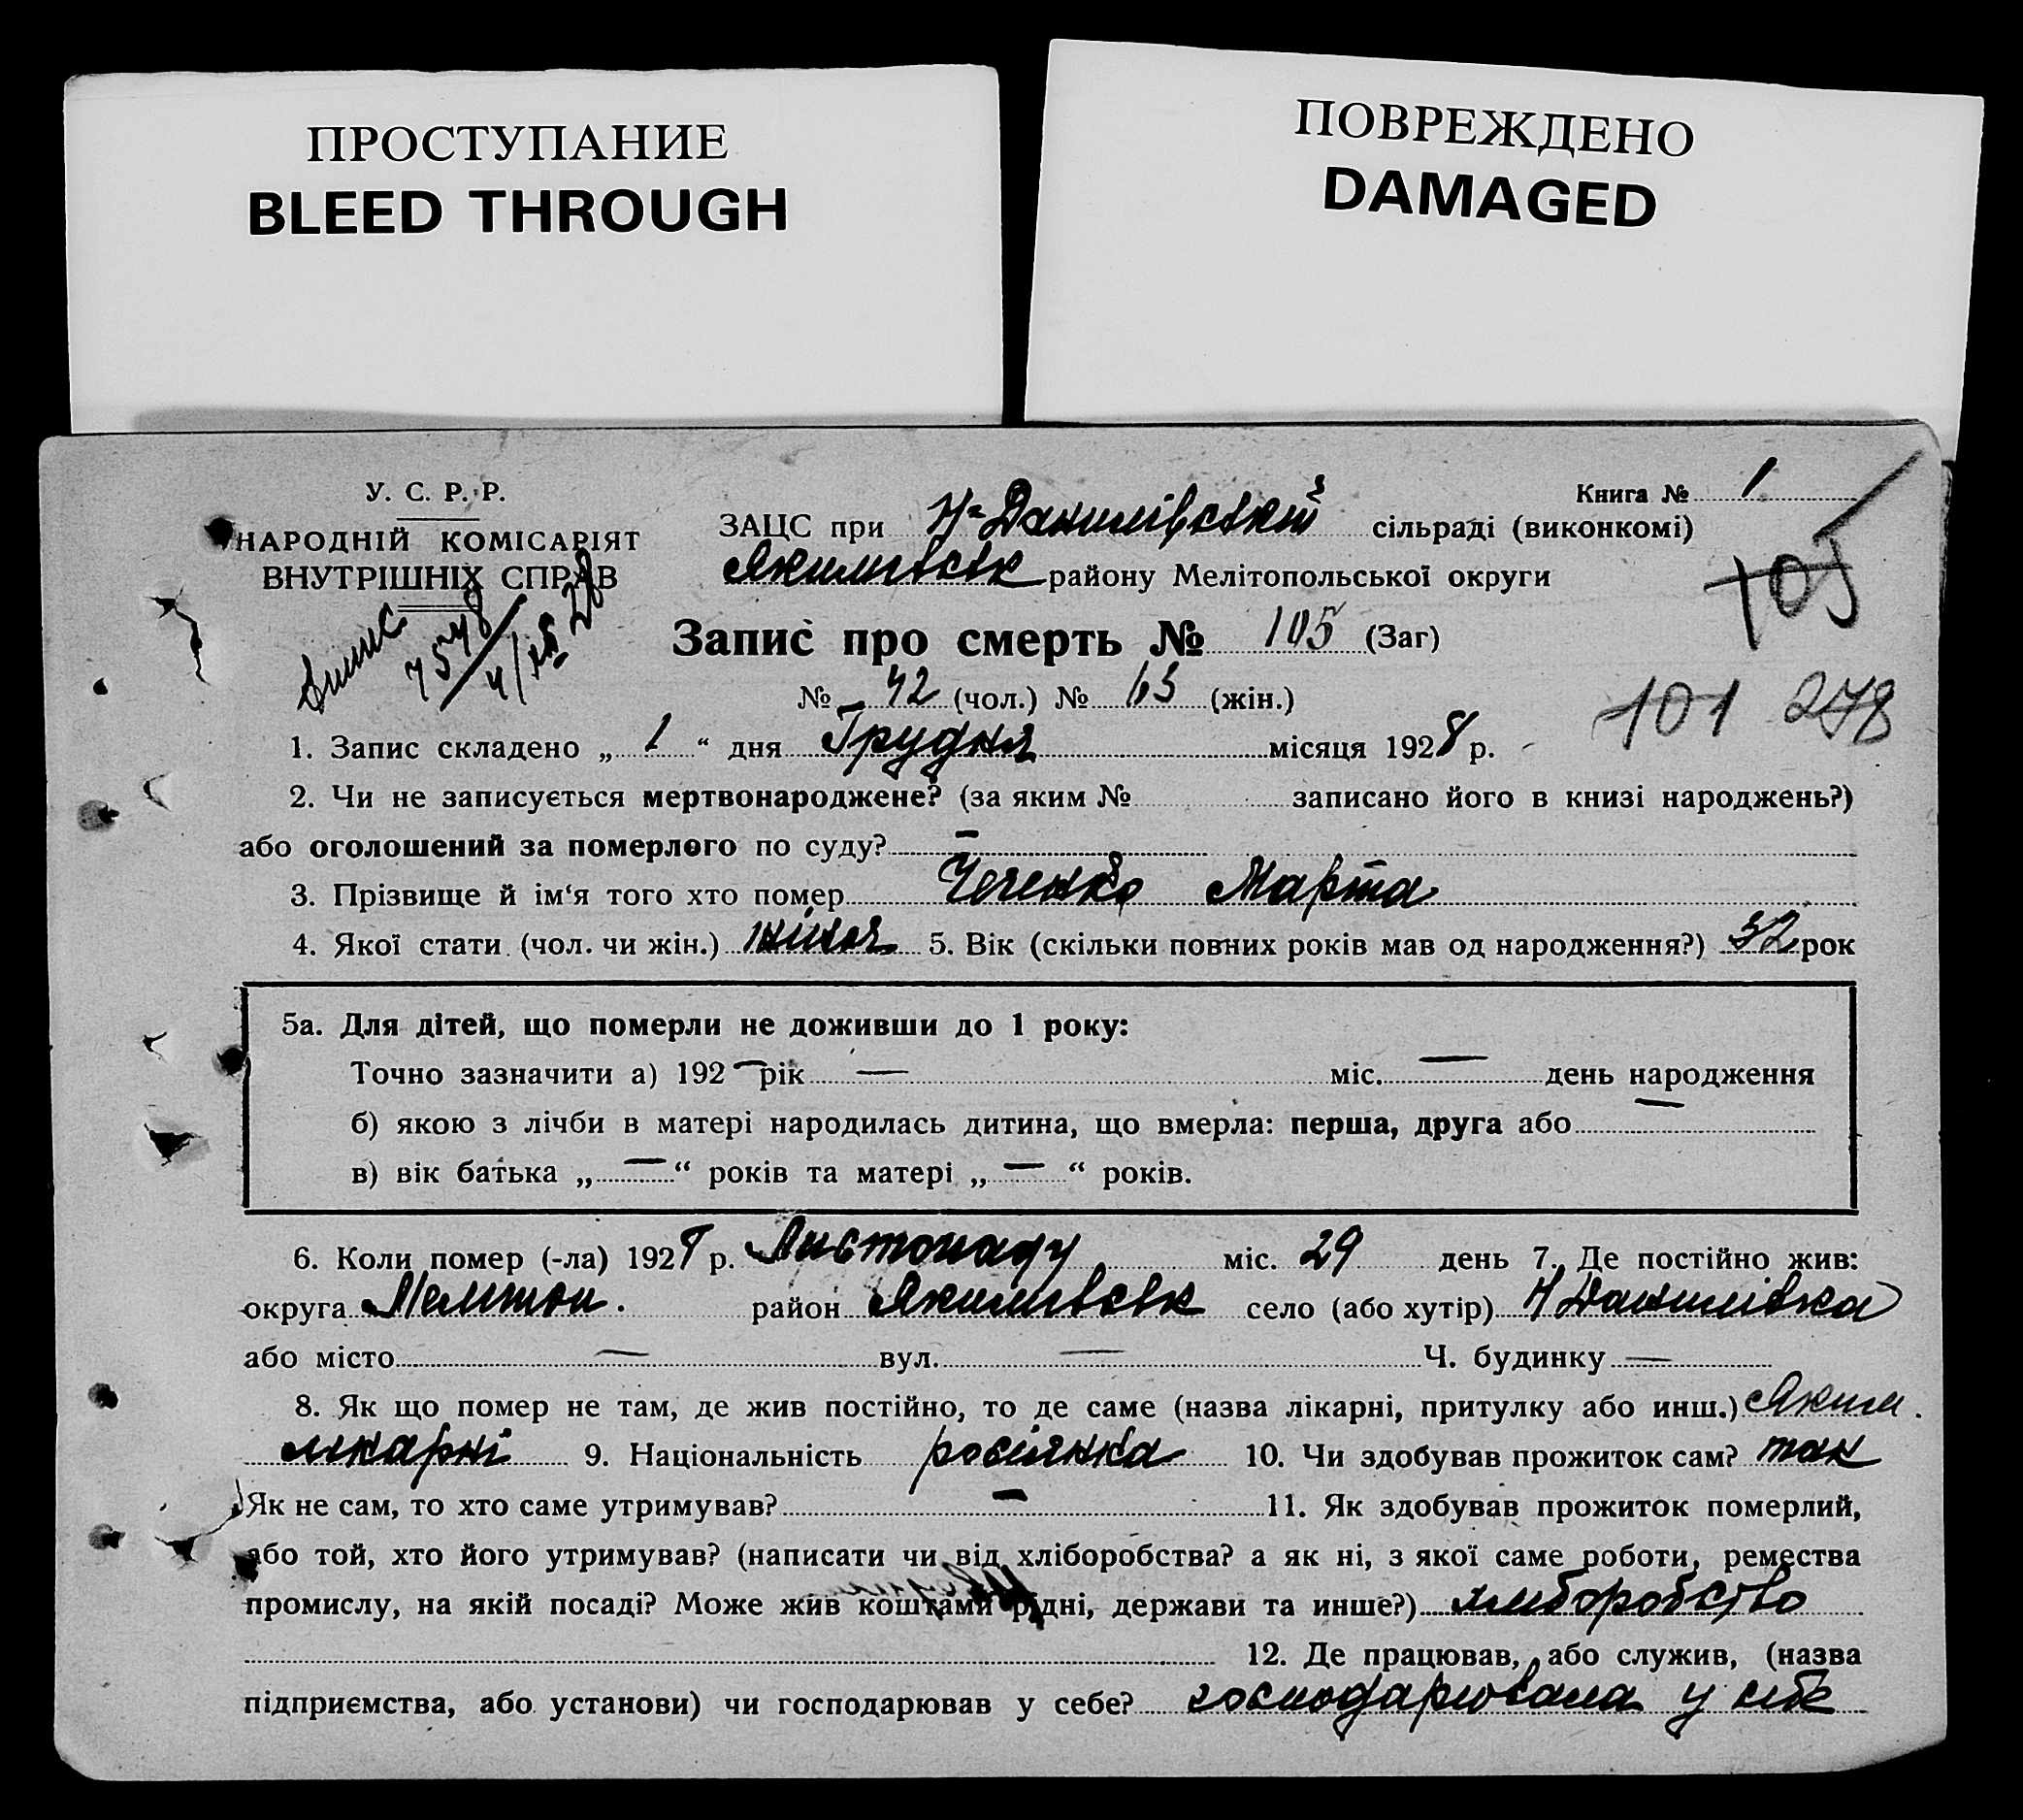 ПРОСТУПАНИЕ
BLEED THROUGH
ПОВРЕЖДЕНО
DAMAGED
У. С. Р. Р.
НАРОДНІЙ КОМІСАРІЯТ
ВНУТРІШНІХ СПРАВ
Книга № 1
ЗАЦС при Н-Данилівській сільраді (виконкомі)
Якимівськ району Мелітопольської округи
105
Запис про смерть № 105 (Заг)
№ 42 (чол.) № 63 (жін.)
101 278
1. Запис складено „ 1 “ дня Грудня місяця 1928 р.
2. Чи не записується мертвонароджене? (за яким № записано його в книзі народжень?)
або оголошений за померлого по суду? —
3. Прізвище й ім‘я того хто помер Марта
4. Якої стати (чол. чи жін.) жіноч 5. Вік (скільки повних років мав од народження?) 32 рок
5а. Для дітей, що померли не доживши до 1 року:
Точно зазначити а) 192— рік — міс. — день народження
б) якою з лічби в матері народилась дитина, що вмерла: перша, друга або —
в) вік батька „ — “ років та матері „ — “ років.
6. Коли помер (-ла) 1928 р. Листопаду міс. 29 день 7. Де постійно жив:
округа Мелітоп. район Якимівськ село (або хутір) Н Данилівка
або місто — вул. — Ч. будинку —
8. Як що помер не там, де жив постійно, то де саме (назва лікарні, притулку або инш.) Яким.
лікарні 9. Національність росіянка 10. Чи здобував прожиток сам? так
Як не сам, то хто саме утримував? — 11. Як здобував прожиток померлий,
або той, хто його утримував? (написати чи від хліборобства? а як ні, з якої саме роботи, ремества
промислу, на якій посаді? Може жив коштами рідні, держави та инше?) хліборобство
12. Де працював, або служив, (назва
підприємства, або установи) чи господарював у себе? господарювала у себе